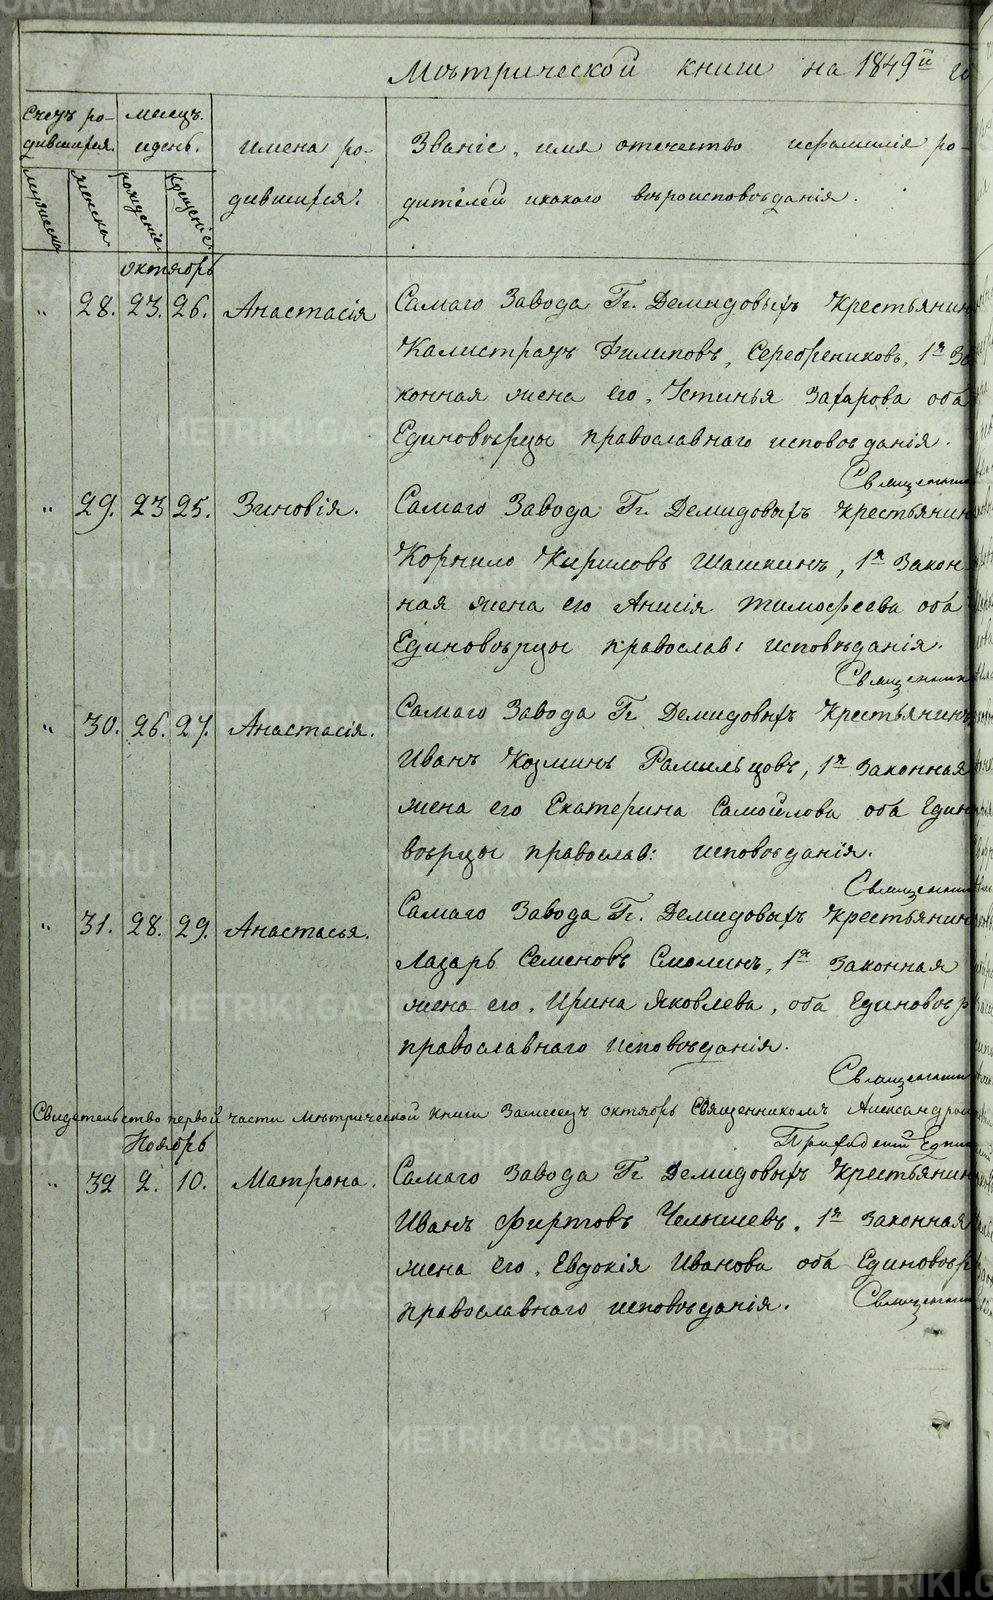 METRIKI.GASO-URAL.RU
Мѣтрической книги на 1849й го
Счетъ ро- дившихся.
мѣсяцъ. и день.
имена ро- дившихся.
Званіе, имя отечество и фамилія ро-
дителей и какого вѣроисповѣданія.
мужеска
женска
рожденіе.
крещеніе.
октябрь
„ 28. 23. 26. Анастасія Самаго Завода Гг. Демидовыхъ крестьянин
Калистратъ Филиповъ, Серебрениковъ, 1я За
конная жена его, Устинья Захарова оба
Единовѣрцы православнаго исповѣданія.
Священник
„ 29. 23 25. Зиновія. Самаго Завода Гг. Демидовыхъ крестьянин
Корнило Кириловъ Шашкинъ, 1я Закон
ная жена его Анисія Тимофеева оба
Единовѣрцы православ: исповѣданія.
Священник
„ 30. 26. 27. Анастасія. Самаго Завода Гг Демидовыхъ Крестьянинъ
Иванъ Козминъ Рамыльцовъ, 1я Законная
жена его Екатерина Самойлова оба Един
вѣрцы православ: исповѣданія.
Священник
„ 31. 28. 29. Анастасья. Самаго Завода Гг. Демидовыхъ крестьянин
Лазарь Семеновъ Смолинъ, 1я Законная
жена его, Ирина Яковлева, оба Единовѣр
православнаго исповѣданія.
Священник
Свидетельство первой части Мѣтрической книги за месецъ октябрь Священникомъ Александром
Ноябрь
„ 32 2. 10. Матрона. Самаго Завода Гг Демидовыхъ Крестьянин
Иванъ Фиртовъ Челышевъ, 1я Законная
жена его, Евдокія Иванова оба Единовѣр
православнаго исповѣданія. Священник